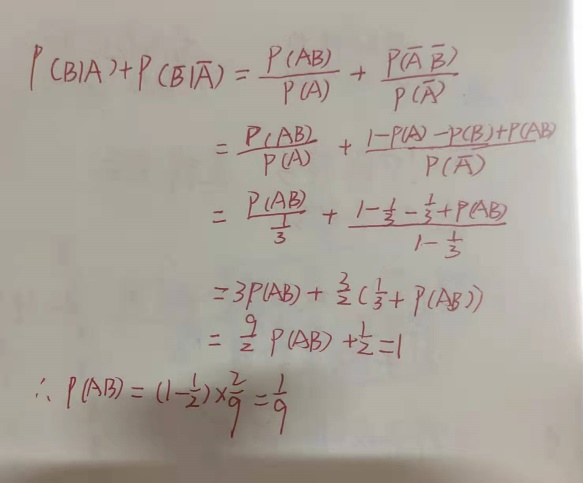 P(B|A)+P(B̅|A̅) = P(AB)/P(A) + P(A̅ B̅)/P(A̅)
= P(AB)/P(A) + (1-P(A)-P(B)+P(AB))/P(A̅)
= P(AB)/(1/3) + (1-1/3-1/3+P(AB))/(1-1/3)
=3P(AB)+ 3/2(1/3+P(AB))
= 9/2 P(AB)+1/2=1
∴ P(AB)=(1-1/2)×2/9=1/9